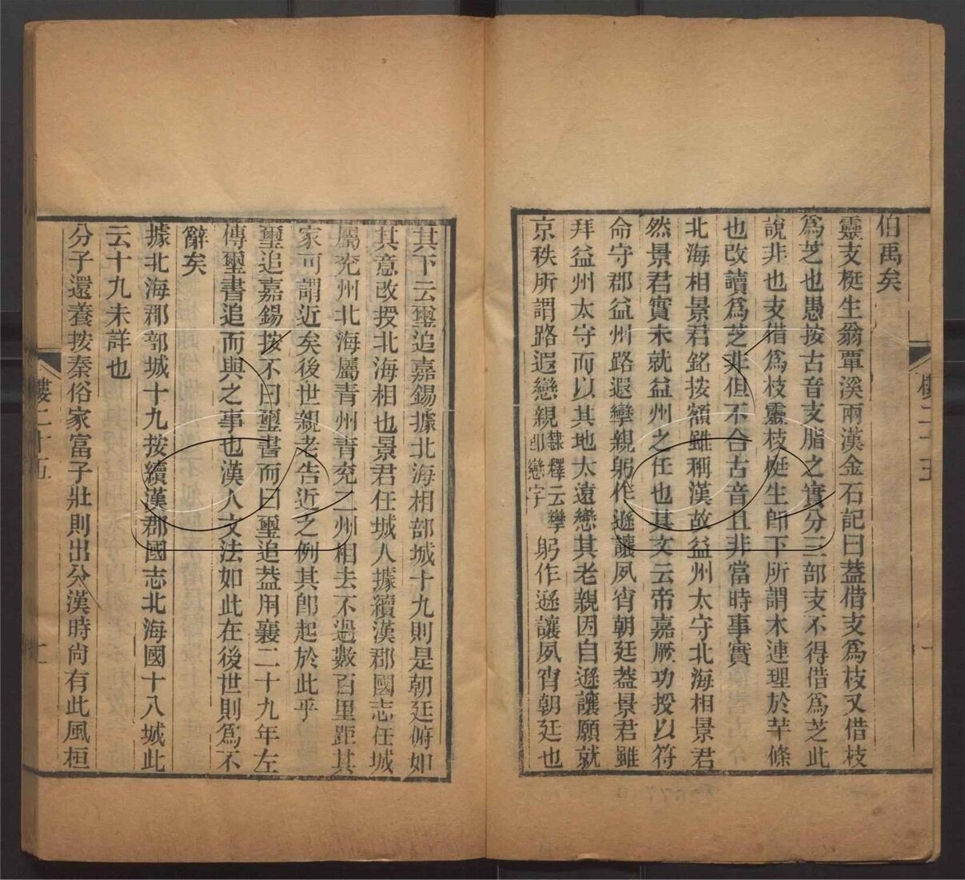 伯禹矣
靈支梃生翁覃溪兩漢金石記曰蓋借支爲枝又借枝
爲芝也愚按古音支脂之實分三部支不得借爲芝此
說非也支借爲枝靈枝梃生卽下所謂木連理於芊條
也改讀爲芝非但不合古音且非當時事實
北海相景君銘按額雖稱漢故益州太守北海相景君
然景君實未就益州之任也其文云帝嘉厥功授以符
命守郡益州路遐攣親躬作遜讓夙宵朝廷蓋景君雖
拜益州太守而以其地太遠戀其老親因自遜讓願就
京秩所謂路遐戀親隸釋云攣卽戀字躬作遜讓夙宵朝廷也
其下云璽追嘉錫據北海相部城十九則是朝廷俯如
其意改授北海相也景君任城人據續漢郡國志任城
屬兖州北海屬青州青兖二州相去不過數百里距其
家可謂近矣後世親老告近之例其卽起於此乎
璽追嘉錫按不曰璽書而曰璽追葢用襄二十九年左
傳璽書追而與之事也漢人文法如此在後世則爲不
辭矣
據北海郡部城十九按續漢郡國志北海國十八城此
云十九未詳也
分子還養按秦俗家富子壯則出分漢時尚有此風桓
樓二十五